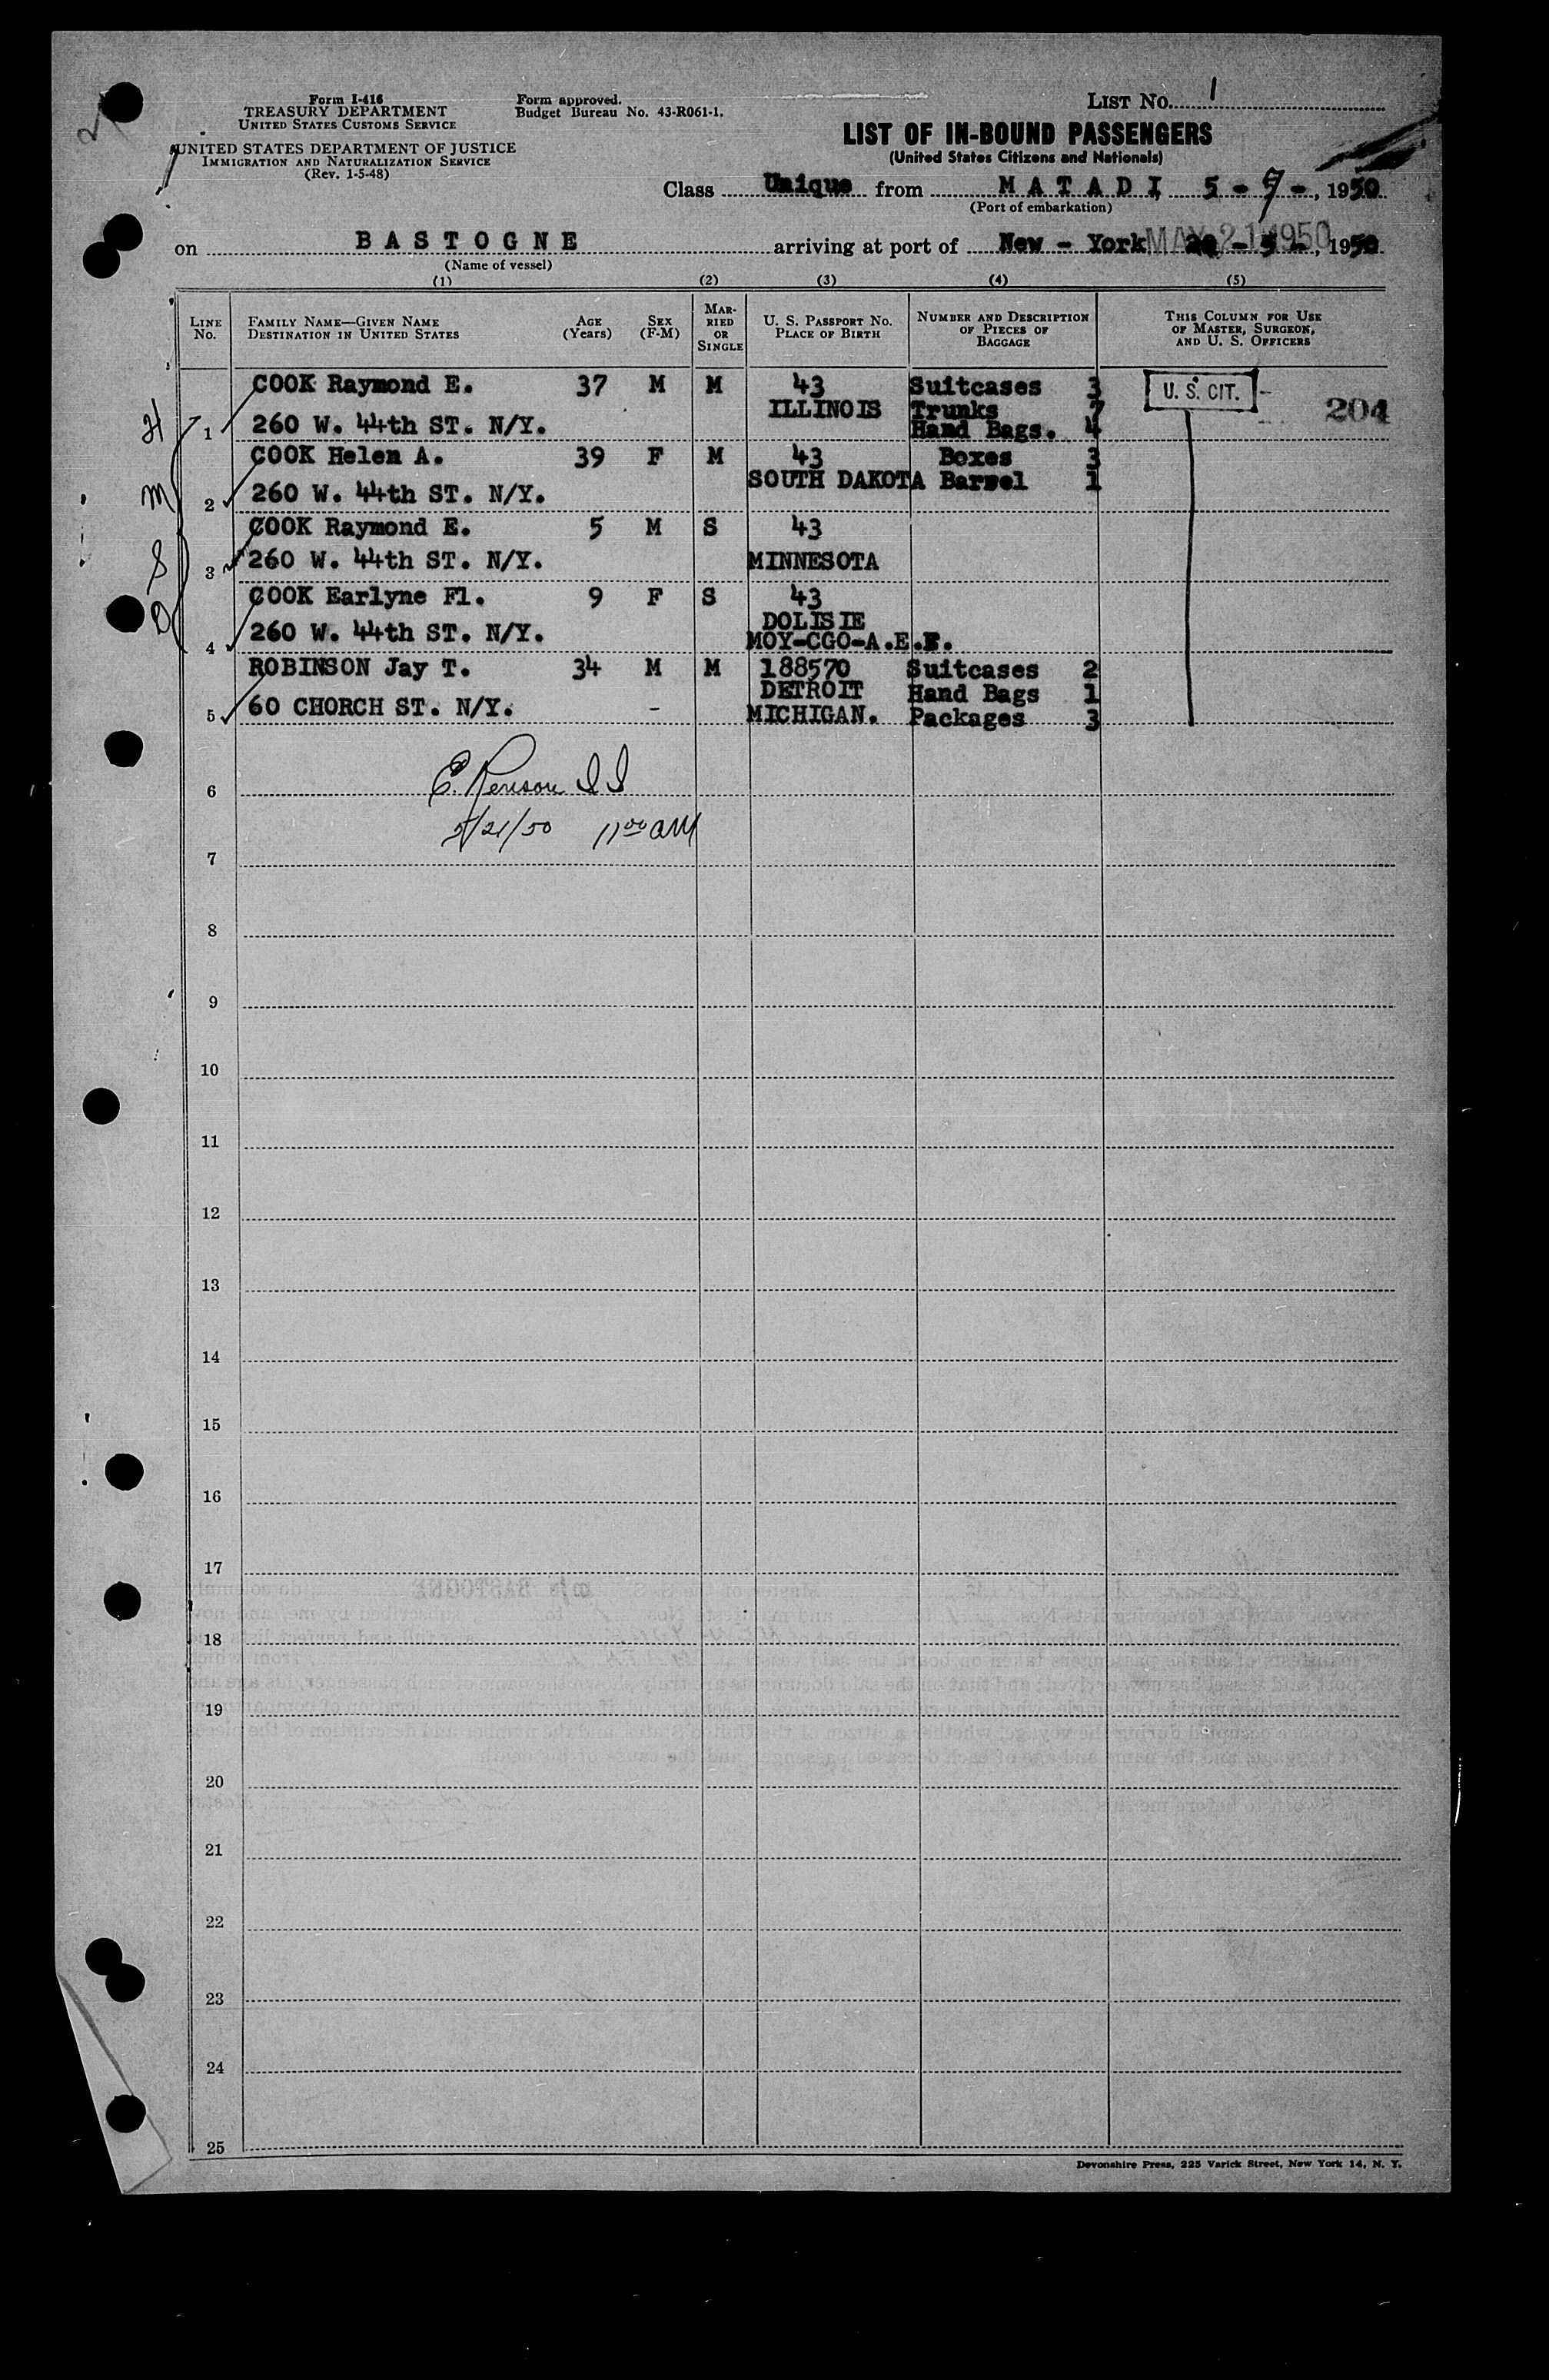 Form I-416
TREASURY DEPARTMENT
UNITED STATES CUSTOMS SERVICE
UNITED STATES DEPARTMENT OF JUSTICE
IMMIGRATION AND NATURALIZATION SERVICE
(Rev. 1-5-48)
Form approved.
Budget Bureau No. 43-R061-1.
LIST NO. 1
LIST OF IN-BOUND PASSENGERS
(United States Citizens and Nationals)
Class Unique from MATADI, 5 - 7 -, 1950
(Port of embarkation)
on BASTOGNE arriving at port of New - York MAY 21 1950 20 - 5 -, 1950
(Name of vessel)
(1) (2) (3) (4) (5)
LINE NO. FAMILY NAME—GIVEN NAME DESTINATION IN UNITED STATES AGE (Years) SEX (F-M) MARRIED OR SINGLE U. S. PASSPORT NO. PLACE OF BIRTH NUMBER AND DESCRIPTION OF PIECES OF BAGGAGE THIS COLUMN FOR USE OF MASTER, SURGEON, AND U. S. OFFICERS
COOK Raymond E. 37 M M 43 Suitcases 3 U. S. CIT. - 204
ILLINOIS Trunks 7
H 1 260 W. 44th ST. N/Y. Hand Bags. 4
COOK Helen A. 39 F M 43 Boxes 3
M 2 260 W. 44th ST. N/Y. SOUTH DAKOTA Barrel 1
COOK Raymond E. 5 M S 43
S 3 260 W. 44th ST. N/Y. MINNESOTA
COOK Earlyne Fl. 9 F S 43
DOLISIE
D 4 260 W. 44th ST. N/Y. MOY-CGO-A.E.F.
ROBINSON Jay T. 34 M M 188570 Suitcases 2
DETROIT Hand Bags 1
5 60 CHORCH ST. N/Y. - MICHIGAN. Packages 3
6 E. Renson I I
5/21/50 11 00 AM
7
8
9
10
11
12
13
14
15
16
17
18
19
20
21
22
23
24
25
Devonshire Press, 225 Varick Street, New York 14, N. Y.